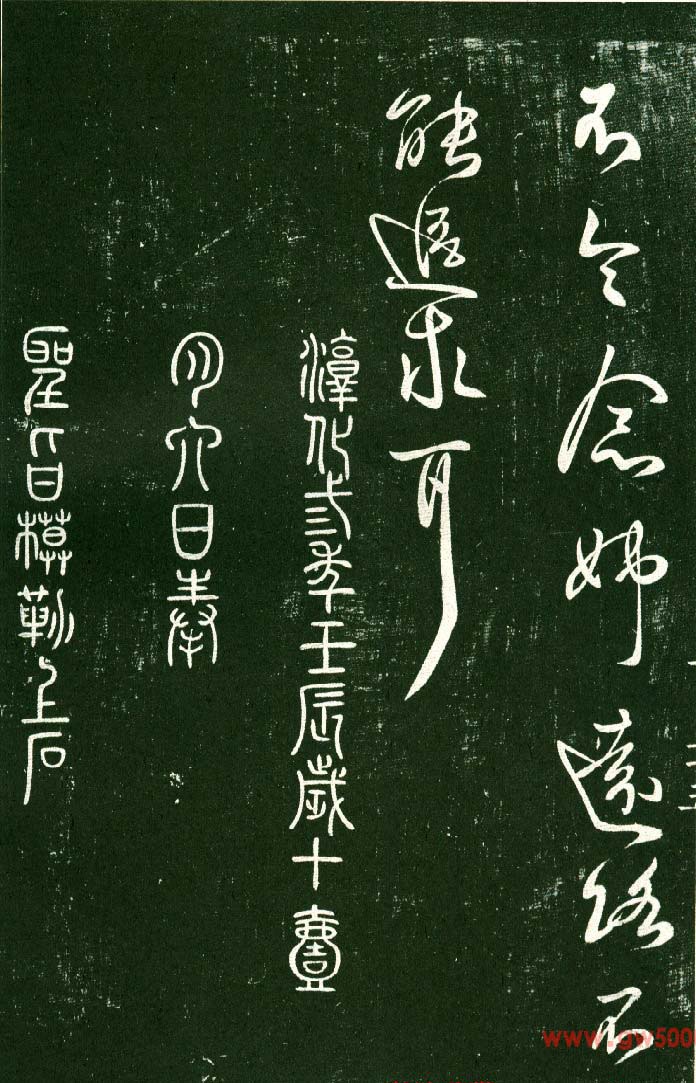 不令念姊遠路不
能求耳
淳化弎年壬辰歲十壹
月六日奉
聖旨模勒上石
www.gw500